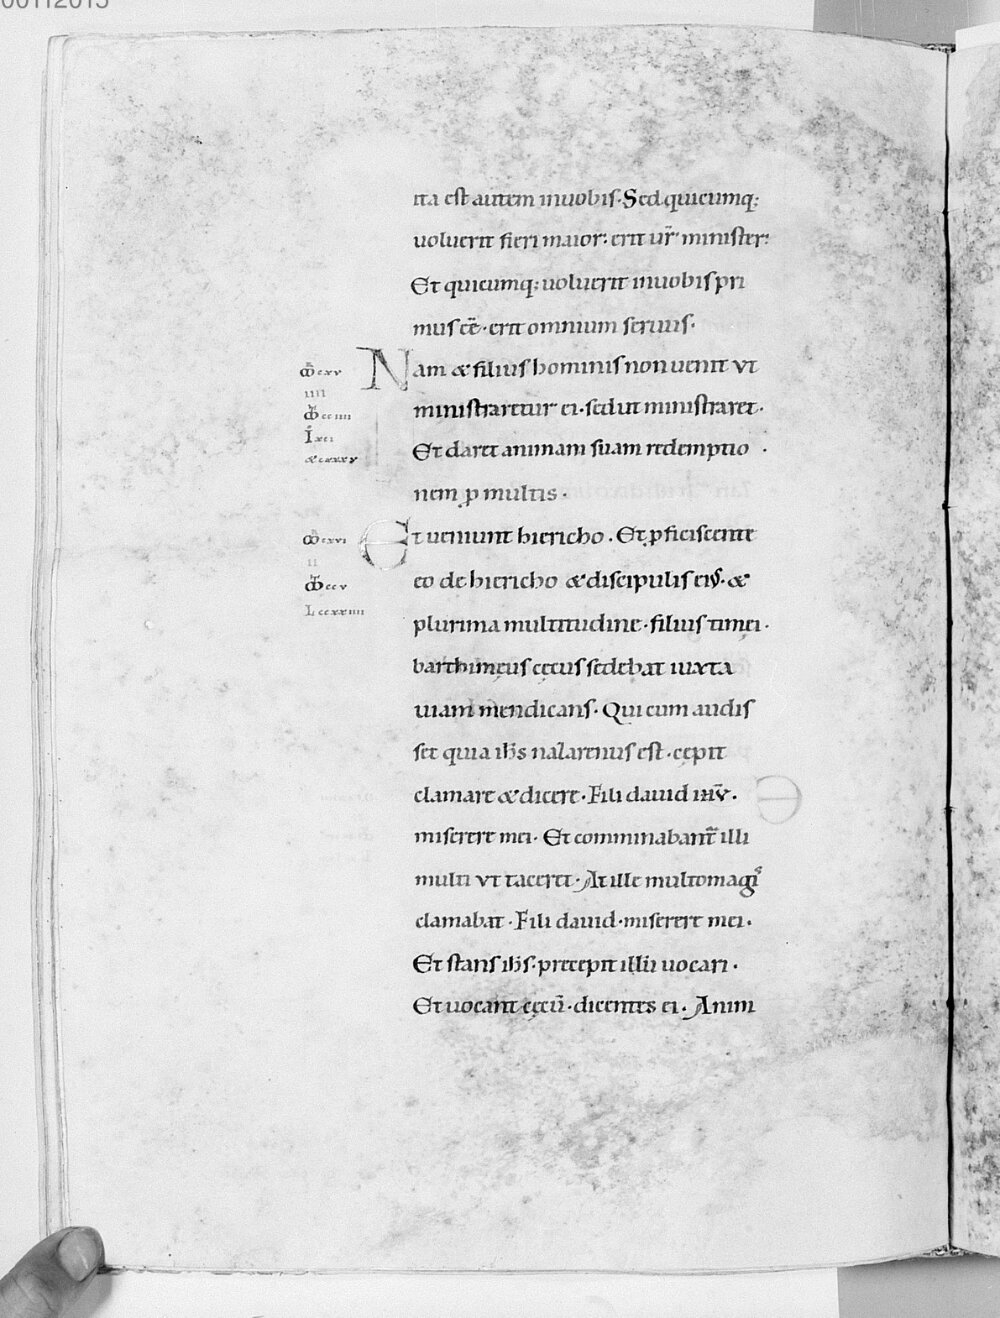 ita est autem inuobis. Sed quicumq;
uoluerit fieri maior. erit ur̄ minister.
Et quicumq; uoluerit inuobis pri
mus eē. erit omnium seruus.
Nam & filius hominis non uenit ut
ministraretur ei. sed ut ministraret.
Et daret animam suam redemptio
nem ꝓ multis.
Et ueniunt hiericho. Et ꝓficiscente
eo de hiericho & discipulis eiꝰ. &
plurima multitudine. filius timei.
barthimęus cęcus sedebat iuxta
uiam mendicans. Qui cum audis
set quia ihs nazarenus est. cępit
clamare & dicere. Fili dauid
miserere mei. Et comminabant̄ illi
multi ut taceret. At ille multo magis
clamabat. Fili dauid. miserere mei.
Et stans ihs. precepit illū uocari.
Et uocant cęcū. dicentes ei. Anim
cxv
iiii
cciiii
cxvi
ii
ccv